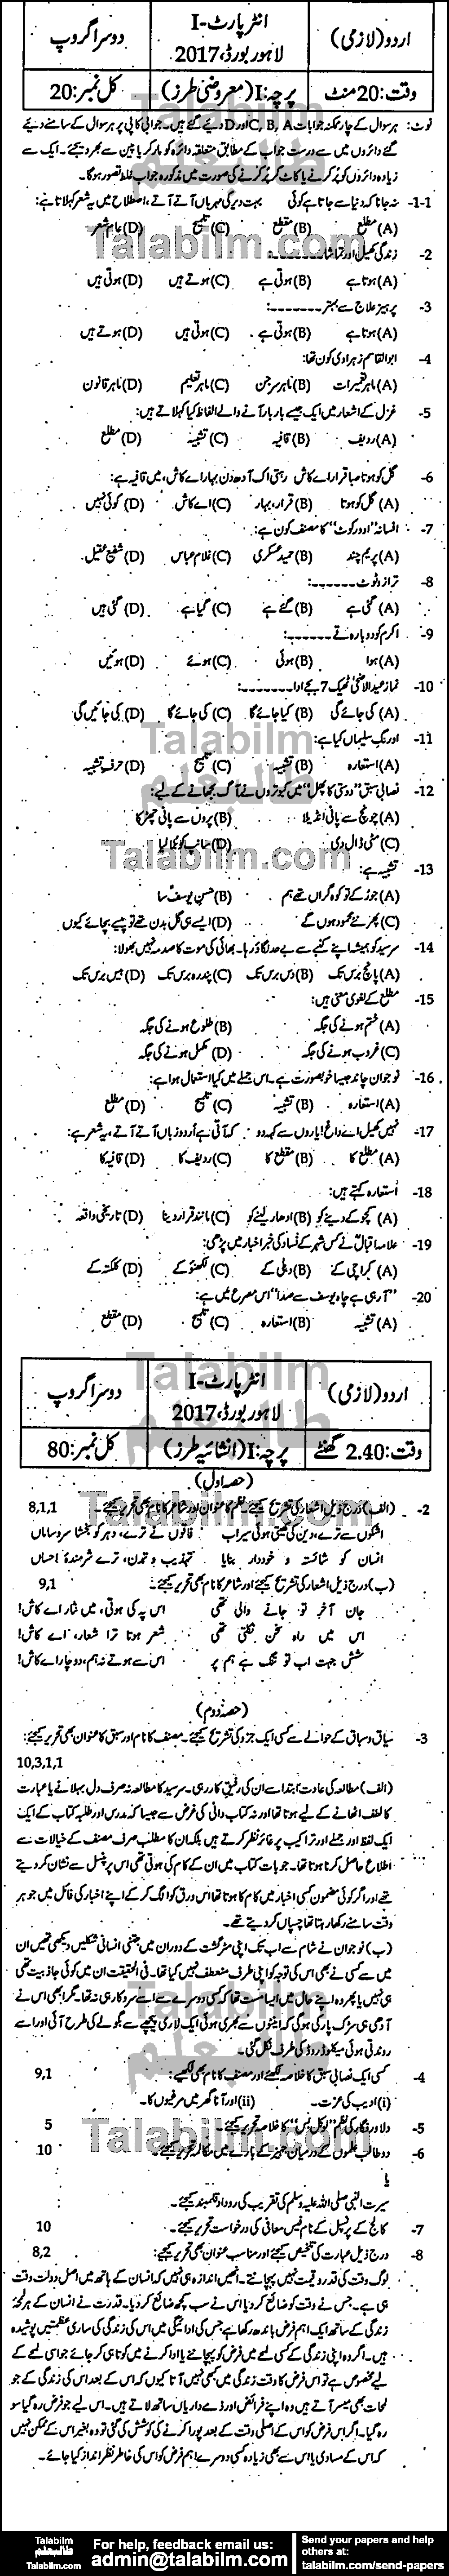 اردو (لازمی)
انٹر پارٹ-I
لاہور بورڈ، 2017
دوسرا گروپ
وقت: 20 منٹ
پرچہ: I (معروضی طرز)
کل نمبر: 20
نوٹ: ہر سوال کے چار ممکنہ جوابات A، B، C اور D دیئے گئے ہیں۔ جوابی کاپی پر ہر سوال کے سامنے دیئے
گئے دائروں میں سے درست جواب کے مطابق متعلقہ دائرہ کو مارکر یا پین سے بھر دیجئے۔ ایک سے
زیادہ دائروں کو پُر کرنے یا کاٹ کر پُر کرنے کی صورت میں مذکورہ جواب غلط تصور ہو گا۔
1-1- نہ جانا کہ دنیا سے جاتا ہے کوئی بہت دیر کی مہرباں آتے آتے، اصطلاح میں یہ شعر کہلاتا ہے:
(A) مطلع (B) مقطع (C) تلمیح (D) عام شعر
2- زندگی کھیل اور تماشا -------:
(A) ہوتا ہے (B) ہوتی ہے (C) ہوتے ہیں (D) ہوتی ہیں
3- پرہیز علاج سے بہتر -------:
(A) ہوتا ہے (B) ہوتی ہے (C) ہوتی ہیں (D) ہوتے ہیں
4- ابوالقاسم زہراوی کون تھا:
(A) ماہر تعمیرات (B) ماہر سرجن (C) ماہر تعلیم (D) ماہر قانون
5- غزل کے اشعار میں ایک جیسے بار بار آنے والے الفاظ کیا کہلاتے ہیں:
(A) ردیف (B) قافیہ (C) تشبیہ (D) مطلع
6- گل کو ہوتا صبا قرار اے کاش رہتی اک آدھ دن بہار اے کاش، میں قافیہ ہے:
(A) گل کو ہوتا (B) قرار، بہار (C) اے کاش (D) کوئی نہیں
7- افسانہ "اوورکوٹ" کا مصنف کون ہے:
(A) پریم چند (B) حمید عسکری (C) غلام عباس (D) شفیع عقیل
8- ترازو ٹوٹ ------:
(A) گئی ہے (B) گئے ہے (C) گیا ہے (D) گئی ہیں
9- اکرم کو دوبارہ تے ------:
(A) ہوا (B) ہوئی (C) ہوئے (D) ہوئیں
10- نماز عیدالاضحیٰ ٹھیک 7 بجے ادا -------:
(A) کی جائے گی (B) کیا جائے گا (C) کی جائے گا (D) کی جائیں گی
11- اورنگِ سلیماں کیا ہے:
(A) استعارہ (B) تشبیہ (C) تلمیح (D) حرفِ تشبیہ
12- نصابی سبق "دوستی کا پھل" میں کبوتروں نے آگ بجھانے کے لیے:
(A) چونچ سے پانی انڈیلا (B) پروں سے پانی چھڑکا
(C) مٹی ڈال دی (D) سانپ کو بلا لیا
13- تشبیہ ہے:
(A) جو رُکے تو کوہِ گراں تھے ہم (B) حسنِ یوسفؑ سا
(C) پھر نئے محمود ہوں گے (D) ایسے ہی گل بدن تھے تو پیسے بچائے کیوں
14- سرسید کو ہمیشہ اپنے کنبے سے بے حد لگاؤ رہا۔ بھائی کی موت کا صدمہ نہیں بھولا:
(A) پانچ برس تک (B) دس برس تک (C) پندرہ برس تک (D) بیس برس تک
15- مطلع کے لغوی معنی ہیں:
(A) ختم ہونے کی جگہ (B) طلوع ہونے کی جگہ
(C) غروب ہونے کی جگہ (D) مکمل ہونے کی جگہ
16- نوجوان چاند جیسا خوبصورت ہے۔ اس جملے میں کیا استعمال ہوا ہے:
(A) استعارہ (B) تشبیہ (C) تلمیح (D) مطلع
17- نہیں کھیل اے داغ! یاروں سے کہہ دو کہ آتی ہے اُردو زباں آتے آتے، یہ شعر ہے:
(A) مطلع کا (B) مقطع کا (C) ردیف کا (D) قافیہ کا
18- استعارہ کہتے ہیں:
(A) کچھ دینے کو (B) ادھار لینے کو (C) مانند قرار دینا (D) تاریخی واقعہ
19- علامہ اقبالؒ نے کس شہر کے فساد کی خبر اخبار میں پڑھی:
(A) کراچی کے (B) دہلی کے (C) لکھنؤ کے (D) کلکتہ کے
20- "آ رہی ہے چاہِ یوسف سے صدا" اس مصرع میں ہے:
(A) تشبیہ (B) استعارہ (C) تلمیح (D) مقطع
اردو (لازمی)
انٹر پارٹ-I
لاہور بورڈ، 2017
دوسرا گروپ
وقت: 2.40 گھنٹے
پرچہ: I (انشائیہ طرز)
کل نمبر: 80
(حصہ اول)
2- (الف) درج ذیل اشعار کی تشریح کیجئے۔ نظم کا عنوان اور شاعر کا نام بھی تحریر کیجئے۔ 8,1,1
اشکوں سے ترے، دین کی کھیتی ہوئی سیراب فاقوں نے ترے، دہر کو بخشا سروساماں
انسان کو شائستہ و خوددار بنایا تہذیب و تمدن، ترے شرمندۂ احساں
(ب) درج ذیل اشعار کی تشریح کیجئے اور شاعر کا نام بھی تحریر کیجئے۔ 9,1
جان آخر تو جانے والی تھی اس پہ کی ہوتی، میں نثار اے کاش!
اس میں راہِ سخن نکلتی تھی شعر ہوتا ترا شعار، اے کاش!
شش جہت اب تو تنگ ہے ہم پر اس سے ہوتے نہ ہم، دوچار اے کاش!
(حصہ دوم)
3- سیاق و سباق کے حوالے سے کسی ایک جزو کی تشریح کیجئے۔ مصنف کا نام اور سبق کا عنوان بھی تحریر کیجئے:
10,3,1,1
(الف) مطالعہ کی عادت ابتدا سے ان کی رفیقِ کار رہی۔ سرسید کا مطالعہ نہ صرف دل بہلانے یا عبارت
کا لطف اٹھانے کے لیے ہوتا تھا اور نہ کتاب دانی کی غرض سے جیسا کہ مدرس اور طلبہ کتاب کے ایک
ایک لفظ اور جملے اور تراکیب پر غائر نظر کرتے ہیں بلکہ ان کا مطلب صرف مصنف کے خیالات سے
اطلاع حاصل کرنا ہوتا تھا۔ جو بات کتاب میں ان کے کام کی ہوتی تھی اس پر پنسل سے نشان کر دیتے
تھے اور اگر کوئی مضمون کسی اخبار میں کام کا ہوتا تھا اس ورق کو الگ کر کے اپنے اخبار کی فائل میں جو ہر
وقت سامنے رکھا رہتا تھا چسپاں کر دیتے تھے۔
(ب) نوجوان نے شام سے اب تک اپنی مٹرگشت کے دوران میں جتنی انسانی شکلیں دیکھی تھیں ان
میں سے کسی نے بھی اس کی توجہ کو اپنی طرف منعطف نہیں کیا تھا۔ فی الحقیقت ان میں کوئی جاذبیت تھی
ہی نہیں یا پھر وہ اپنے حال میں ایسا مست تھا کہ کسی دوسرے سے اسے سروکار ہی نہ تھا۔ مگر ابھی اس نے
آدھی ہی سڑک پار کی ہو گی کہ اینٹوں سے بھری ہوئی ایک لاری پیچھے سے بگولے کی طرح آئی اور اسے
روندتی ہوئی میکلوڈ روڈ کی طرف نکل گئی۔
4- کسی ایک نصابی سبق کا خلاصہ لکھئے اور مصنف کا نام بھی لکھیے: 9,1
(i) ادیب کی عزت۔ (ii) اور آنا گھر میں مرغیوں کا۔
5- دلاور فگار کی نظم "لوکل بس" کا خلاصہ تحریر کیجئے۔ 5
6- دو طالب علموں کے درمیان جہیز کے بارے میں مکالمہ تحریر کیجئے۔ 10
یا
سیرت النبی صلی اللہ علیہ وسلم کی تقریب کی روداد قلمبند کیجئے۔
7- کالج کے پرنسپل کے نام فیس معافی کی درخواست تحریر کیجئے۔ 10
8- درج ذیل عبارت کی تلخیص کیجئے اور مناسب عنوان بھی تحریر کیجئے: 8,2
لوگ وقت کی قدر و قیمت نہیں پہچانتے۔ انھیں اندازہ ہی نہیں کہ انسان کے ہاتھ میں اصل دولت وقت
ہی ہے۔ جس نے وقت کو ضائع کر دیا اس نے سب کچھ ضائع کر دیا۔ قدرت نے انسان کے ہر لمحۂ
زندگی کے ساتھ ایک اہم فرض باندھ رکھا ہے جس کی ادائیگی میں اس کی زندگی کی ساری عظمتیں پوشیدہ
ہیں۔ اگر وہ اپنی زندگی کے کسی لمحے میں فرض کو پہچاننے یا ادا کرنے میں کوتاہی کر جائے جو اسی لمحے کے
لیے مخصوص ہے تو اس فرض کا وقت زندگی میں کبھی نہیں آتا کیوں کہ اس کے بعد اس کی زندگی کے جو
لمحات بھی میسر آتے ہیں وہ اپنے فرائض اور ذمے داریاں ساتھ لاتے ہیں۔ اس لیے جو فرض رہ گیا سو
رہ گیا۔ اگر اس فرض کو اس کے اصلی وقت کے بعد پورا کرنے کی کوشش کی گئی تو وہ بغیر اس کے ممکن نہیں
کہ اس کے مساوی یا اس سے بھی زیادہ کسی دوسرے اہم فرض کو اس کی خاطر نظر انداز کیا جائے۔
Talabilm
طالبعلم
Talabilm.com
For help, feedback email us:
admin@talabilm.com
Send your papers and help others at:
talabilm.com/send-papers